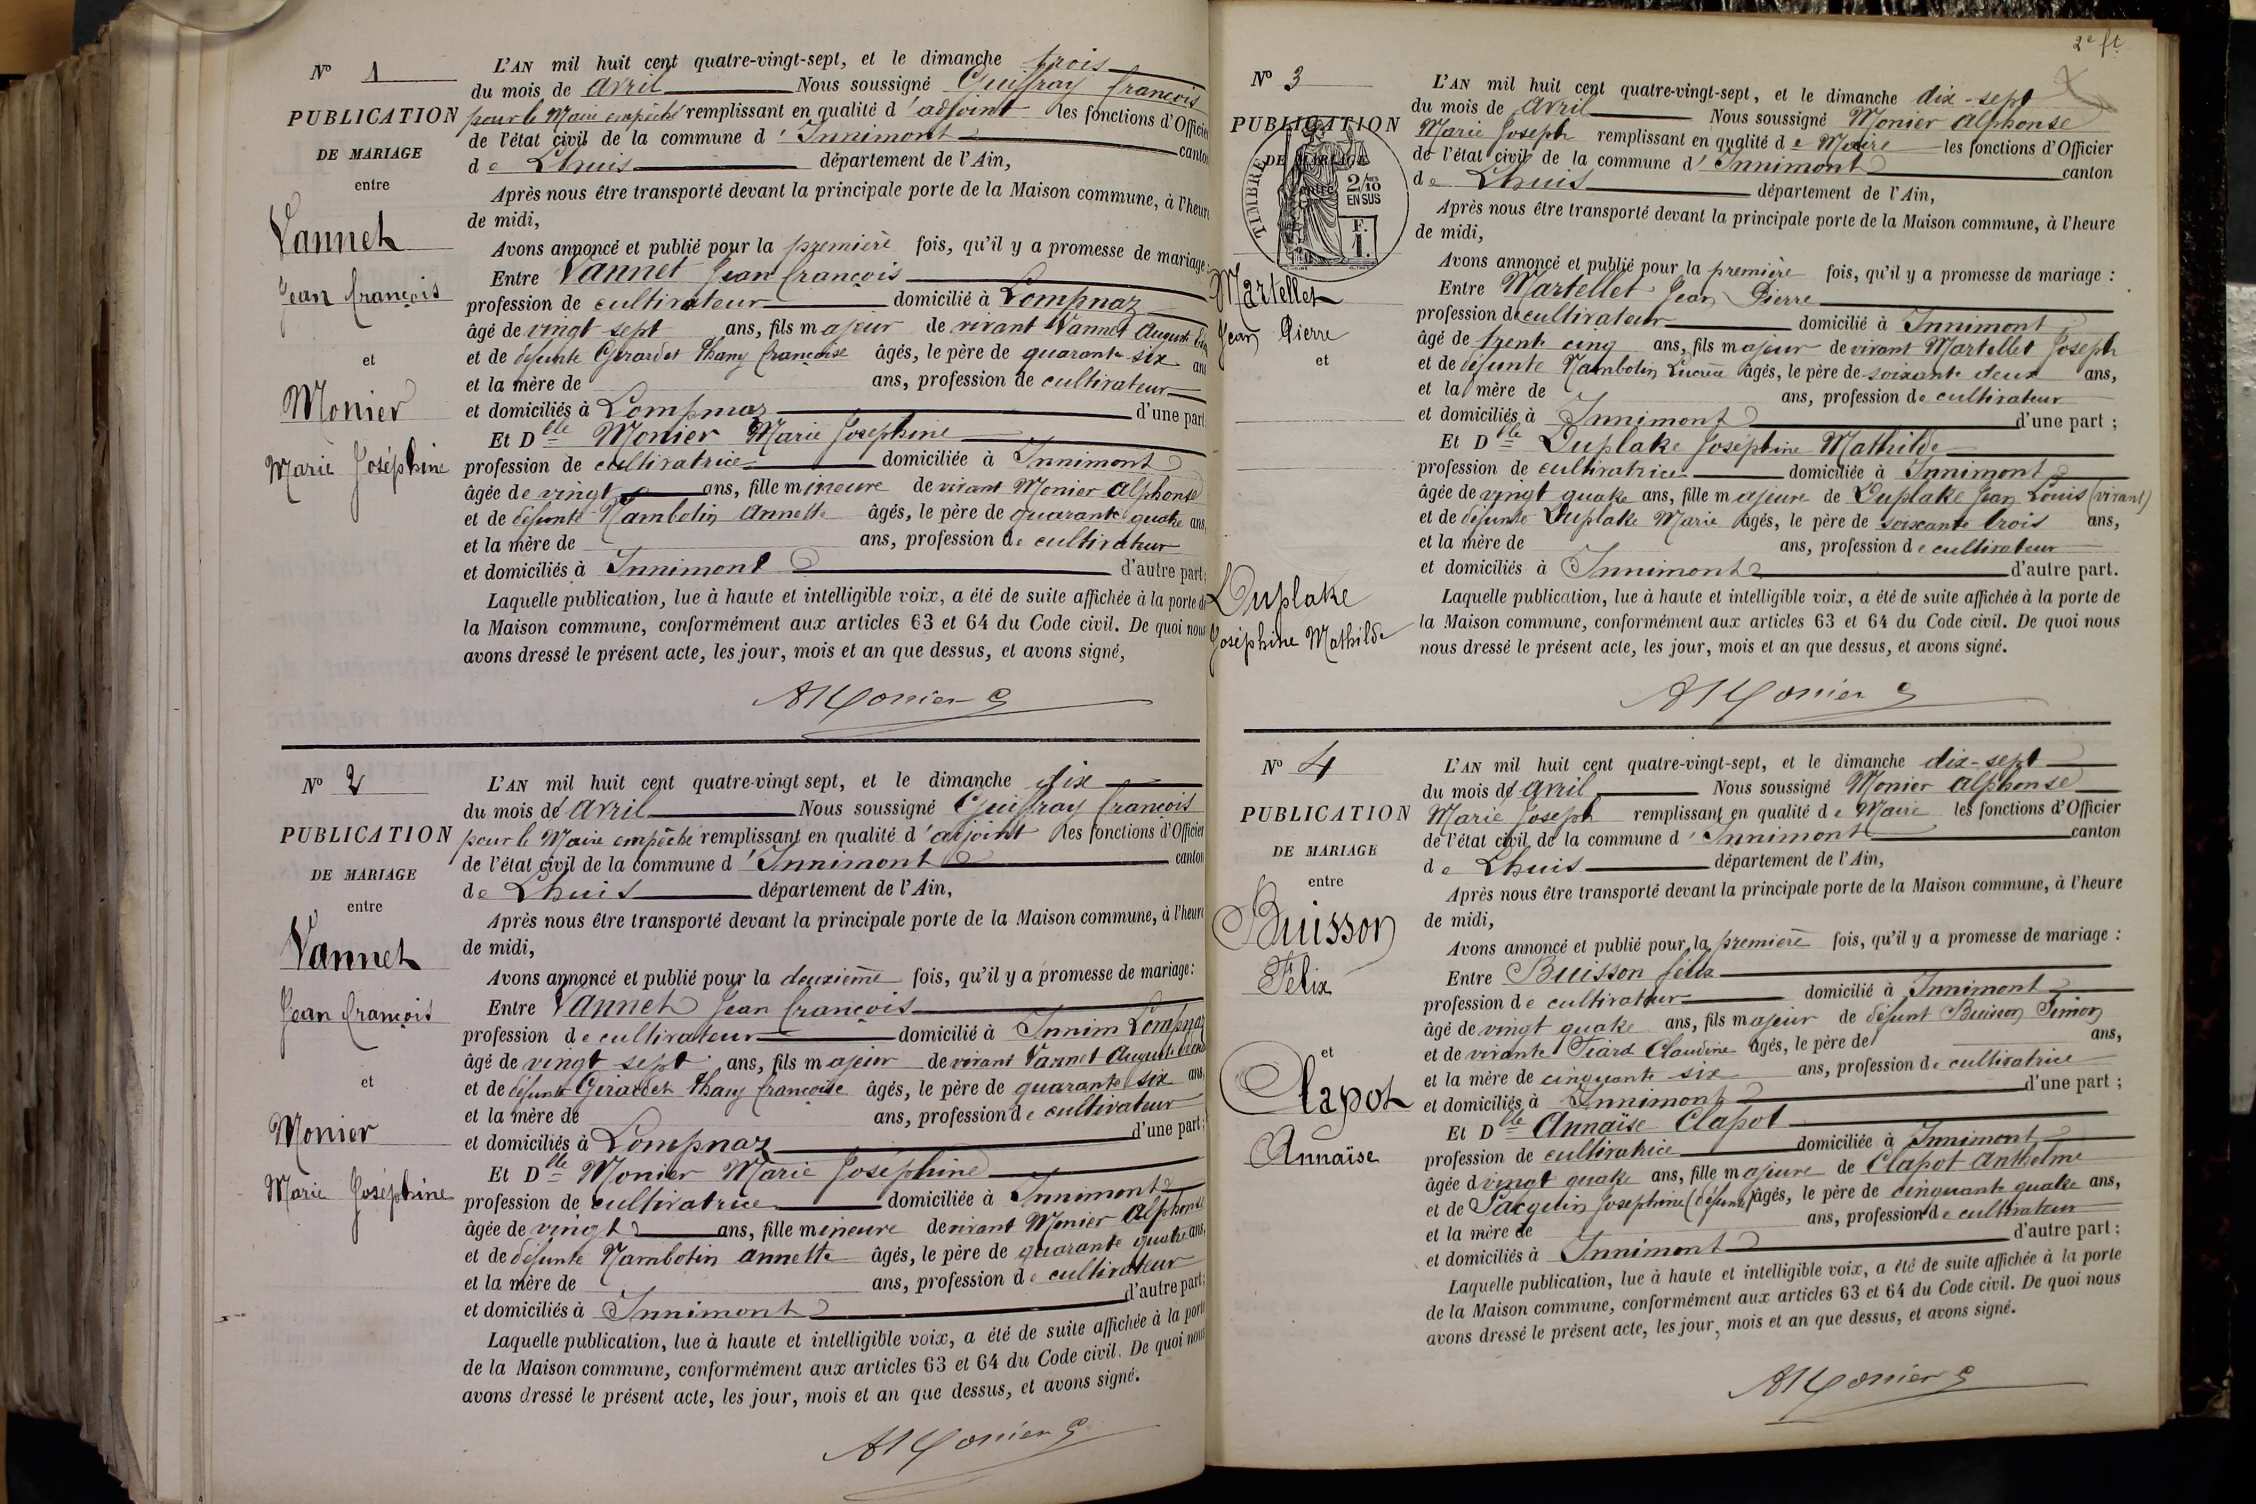 N° 1
PUBLICATION
DE MARIAGE
entre
Vannet
Jean François
et
Monier
Marie Joséphine
L'AN mil huit cent quatre-vingt-sept, et le dimanche trois
du mois de avril Nous soussigné Guiffray françois
pour le Maire empêché remplissant en qualité d'adjoint les fonctions d'Officier
de l'état civil de la commune d'Innimont canton
de Lhuis département de l'Ain,
Après nous être transporté devant la principale porte de la Maison commune, à l'heure
de midi,
Avons annoncé et publié pour la première fois, qu'il y a promesse de mariage :
Entre Vannet Jean françois
profession de cultivateur domicilié à Lompnaz
âgé de vingt sept ans, fils majeur de vivant Vannet Auguste
et de defunte Girardet françoise âgés, le père de quarante six ans
et la mère de ans, profession de cultivateur
et domiciliés à Lompnaz d'une part
Et Dlle Monier Marie Joséphine
profession de cultivatrice domiciliée à Innimont
âgée de vingt ans, fille mineure de vivant Monier Alphonse
et de defunte Nambotin Annette âgés, le père de quarante quatre ans,
et la mère de ans, profession de cultivateur
et domiciliés à Innimont d'autre part;
Laquelle publication, lue à haute et intelligible voix, a été de suite affichée à la porte de
la Maison commune, conformément aux articles 63 et 64 du Code civil. De quoi nous
avons dressé le présent acte, les jour, mois et an que dessus, et avons signé,
AMonier
N° 2
PUBLICATION
DE MARIAGE
entre
Vannet
Jean François
et
Monier
Marie Joséphine
L'AN mil huit cent quatre-vingt sept, et le dimanche dix
du mois de avril Nous soussigné Guiffray françois
pour le Maire empêché remplissant en qualité d'adjoint les fonctions d'Officier
de l'état civil de la commune d'Innimont canton
de Lhuis département de l'Ain,
Après nous être transporté devant la principale porte de la Maison commune, à l'heure
de midi,
Avons annoncé et publié pour la deuxième fois, qu'il y a promesse de mariage :
Entre Vannet Jean françois
profession de cultivateur domicilié à Innim Lompnaz
âgé de vingt sept ans, fils majeur de vivant Vannet Auguste
et de défunte Girardet françoise âgés, le père de quarante six ans,
et la mère de ans, profession de cultivateur
et domiciliés à Lompnaz d'une part;
Et Dlle Monier Marie Joséphine
profession de cultivatrice domiciliée à Innimont
âgée de vingt ans, fille mineure de vivant Monier Alphonse
et de défunte Nambotin annette âgés, le père de quarante quatre ans,
et la mère de ans, profession de cultivateur
et domiciliés à Innimont d'autre part;
Laquelle publication, lue à haute et intelligible voix, a été de suite affichée à la porte
de la Maison commune, conformément aux articles 63 et 64 du Code civil. De quoi nous
avons dressé le présent acte, les jour, mois et an que dessus, et avons signé.
AMonier
2e ft
N° 3
PUBLICATION
DE MARIAGE
entre
TIMBRE
2/10
EN SUS
F.
1.
Martellet
Jean Pierre
et
Duplake
Joséphine Mathilde
L'AN mil huit cent quatre-vingt-sept, et le dimanche dix-sept
du mois de avril Nous soussigné Monier Alphonse
Marie Joseph remplissant en qualité de Maire les fonctions d'Officier
de l'état civil de la commune d'Innimont canton
de Lhuis département de l'Ain,
Après nous être transporté devant la principale porte de la Maison commune, à l'heure
de midi,
Avons annoncé et publié pour la première fois, qu'il y a promesse de mariage :
Entre Martellet Jean Pierre
profession de cultivateur domicilié à Innimont
âgé de trente cinq ans, fils majeur de vivant Martellet Joseph
et de défunte Nambotin âgés, le père de soixante deux ans,
et la mère de ans, profession de cultivateur
et domiciliés à Innimont d'une part ;
Et Dlle Duplake Joséphine Mathilde
profession de cultivatrice domiciliée à Innimont
âgée de vingt quatre ans, fille majeure de Duplake Jean Louis (vivant)
et de défunte Duplake Marie âgés, le père de soixante trois ans,
et la mère de ans, profession de cultivateur
et domiciliés à Innimont d'autre part.
Laquelle publication, lue à haute et intelligible voix, a été de suite affichée à la porte de
la Maison commune, conformément aux articles 63 et 64 du Code civil. De quoi nous
nous dressé le présent acte, les jour, mois et an que dessus, et avons signé.
AMonier
N° 4
PUBLICATION
DE MARIAGE
entre
Buisson
Félix
et
Clapot
Annaïse
L'AN mil huit cent quatre-vingt-sept, et le dimanche dix-sept
du mois de avril Nous soussigné Monier Alphonse
Marie Joseph remplissant en qualité de Maire les fonctions d'Officier
de l'état civil de la commune d'Innimont canton
de Lhuis département de l'Ain,
Après nous être transporté devant la principale porte de la Maison commune, à l'heure
de midi,
Avons annoncé et publié pour la première fois, qu'il y a promesse de mariage :
Entre Buisson félix
profession de cultivateur domicilié à Innimont
âgé de vingt quatre ans, fils majeur de défunt Buisson Simon
et de vivante Tiard Claudine âgés, le père de ans,
et la mère de cinquante six ans, profession de cultivatrice
et domiciliés à Innimont d'une part ;
Et Dlle Annaïse Clapot
profession de cultivatrice domiciliée à Innimont
âgée d vingt quatre ans, fille majeure de Clapot Anthelme
et de Jacquelin Joséphine (défunte) âgés, le père de cinquante quatre ans,
et la mère de ans, profession de cultivateur
et domiciliés à Innimont d'autre part ;
Laquelle publication, lue à haute et intelligible voix, a été de suite affichée à la porte
de la Maison commune, conformément aux articles 63 et 64 du Code civil. De quoi nous
avons dressé le présent acte, les jour, mois et an que dessus, et avons signé.
AMonier